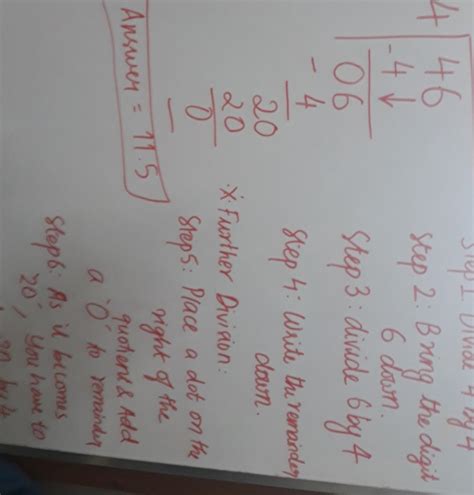 4 46
-4↓
06
- 4
20
20
0
Answer = 11.5
Step 2: Bring the digit
6 down.
Step 3: divide 6 by 4
Step 4: Write the remainder
down.
Further Division:
Step 5: Place a dot on the
right of the
quotient & Add
a "0" to remainder
Step 6: As it becomes
"20", you have to